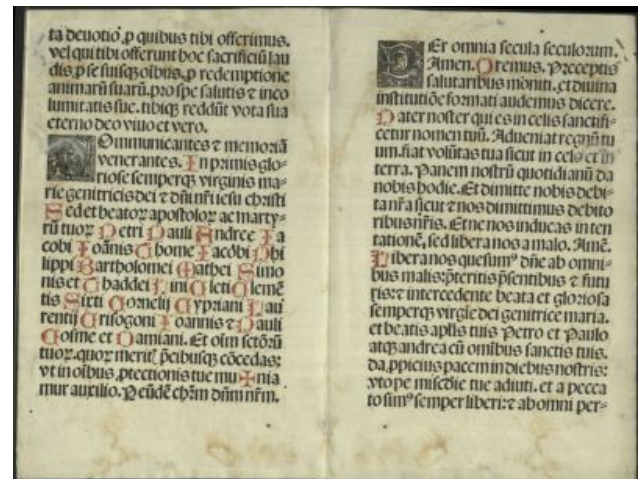 ta deuotiõ, p quibus tibi offerimus.
vel qui tibi offerunt hoc sacrificiũ lau
dis, p se suisq; oĩbus, p redemptione
animarũ suarũ, pro spe salutis ⁊ inco
lumitatis sue. tibiq; reddũt vota sua
eterno deo viuo et vero.
Communicantes ⁊ memoriã
venerantes. In primis glo-
riose semperq; virginis ma-
rie genitricis dei ⁊ dñi nr̃i iesu christi
Sed et beatoꝝ apostoloꝝ ac marty-
rũ tuoꝝ Petri Pauli Andree Ia
cobi Ioãnis Thome Iacobi Phi
lippi Bartholomei Mathei Simo
nis et Thaddei Lini Cleti Clemẽ
tis Sixti Cornelij Cypriani Lau
rentij Crisogoni Ioannis ⁊ Pauli
Cosme et Damiani. Et oĩm sctõꝝũ
tuoꝝ. quoꝝ merit̃ p̃cibusq; cõcedas:
vt in oĩbus, ptectionis tue mu✠nia
mur auxilio. P eũdẽ chr̃m dñm nr̃m.
Per omnia secula seculorum.
Amen. Oremus. Preceptis
salutaribus moniti. et diuina
institutiõe formati audemus dicere.
Pater noster qui es in celis sanctifi-
cetur nomen tuũ. Adueniat regnũ tu
um. fiat volũtas tua sicut in celo et in
terra. Panem nostrũ quotidianũ da
nobis hodie. Et dimitte nobis debi-
ta nr̃a sicut ⁊ nos dimittimus debito
ribus nr̃is. Et ne nos inducas in ten
tationẽ, sed libera nos a malo. Amẽ.
Libera nos quesumꝰ dñe ab omni-
bus malis: p̃teritis p̃sentibus ⁊ futu
ris: ⁊ intercedente beata et gloriosa
semperq; virgĩe dei genitrice maria.
et beatis apl̃is tuis Petro et Paulo
atq; andrea cũ omĩbus sanctis tuis.
da, ppicius pacem in diebus nostris:
vt ope mis̃edie tue adiuti. et a pecca
to simꝰ semper liberi: ⁊ ab omni per-